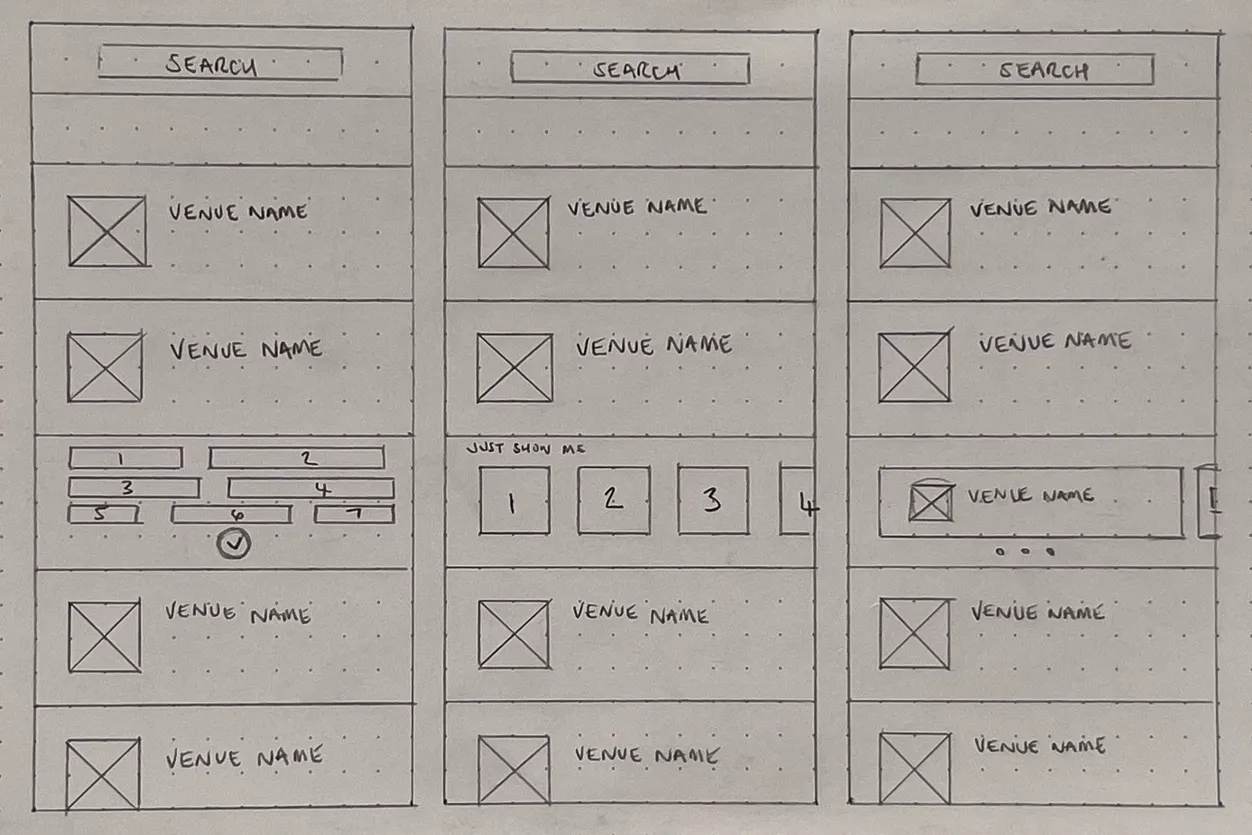 SEARCH
VENUE NAME
VENUE NAME
1 2
3 4
5 6 7
VENUE NAME
VENUE NAME
SEARCH
VENUE NAME
VENUE NAME
JUST SHOW ME
1 2 3 4
VENUE NAME
VENUE NAME
SEARCH
VENUE NAME
VENUE NAME
VENUE NAME
VENUE NAME
VENUE NAME